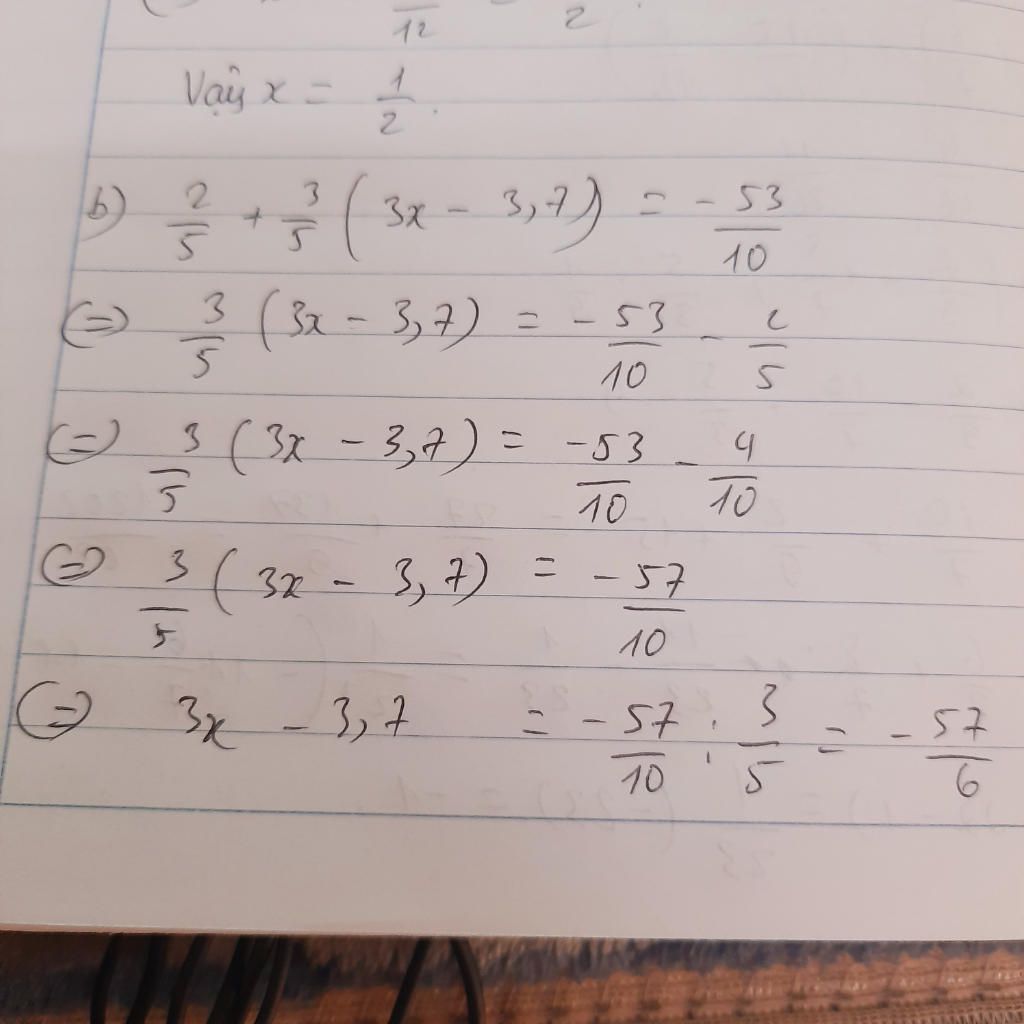 12 2
Vậy x = 1/2.
b) 2/5 + 3/5 (3x - 3,7) = -53/10
(=) 3/5 (3x - 3,7) = -53/10 - 2/5
(=) 3/5 (3x - 3,7) = -53/10 - 4/10
(=) 3/5 (3x - 3,7) = -57/10
(=) 3x - 3,7 = -57/10 : 3/5 = -57/6